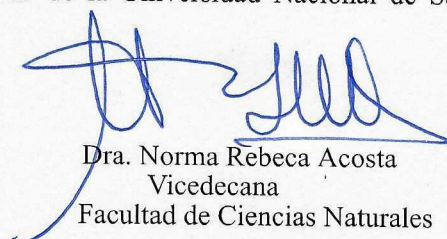 de la Universidad Nacional de
Dra. Norma Rebeca Acosta
Vicedecana
Facultad de Ciencias Naturales